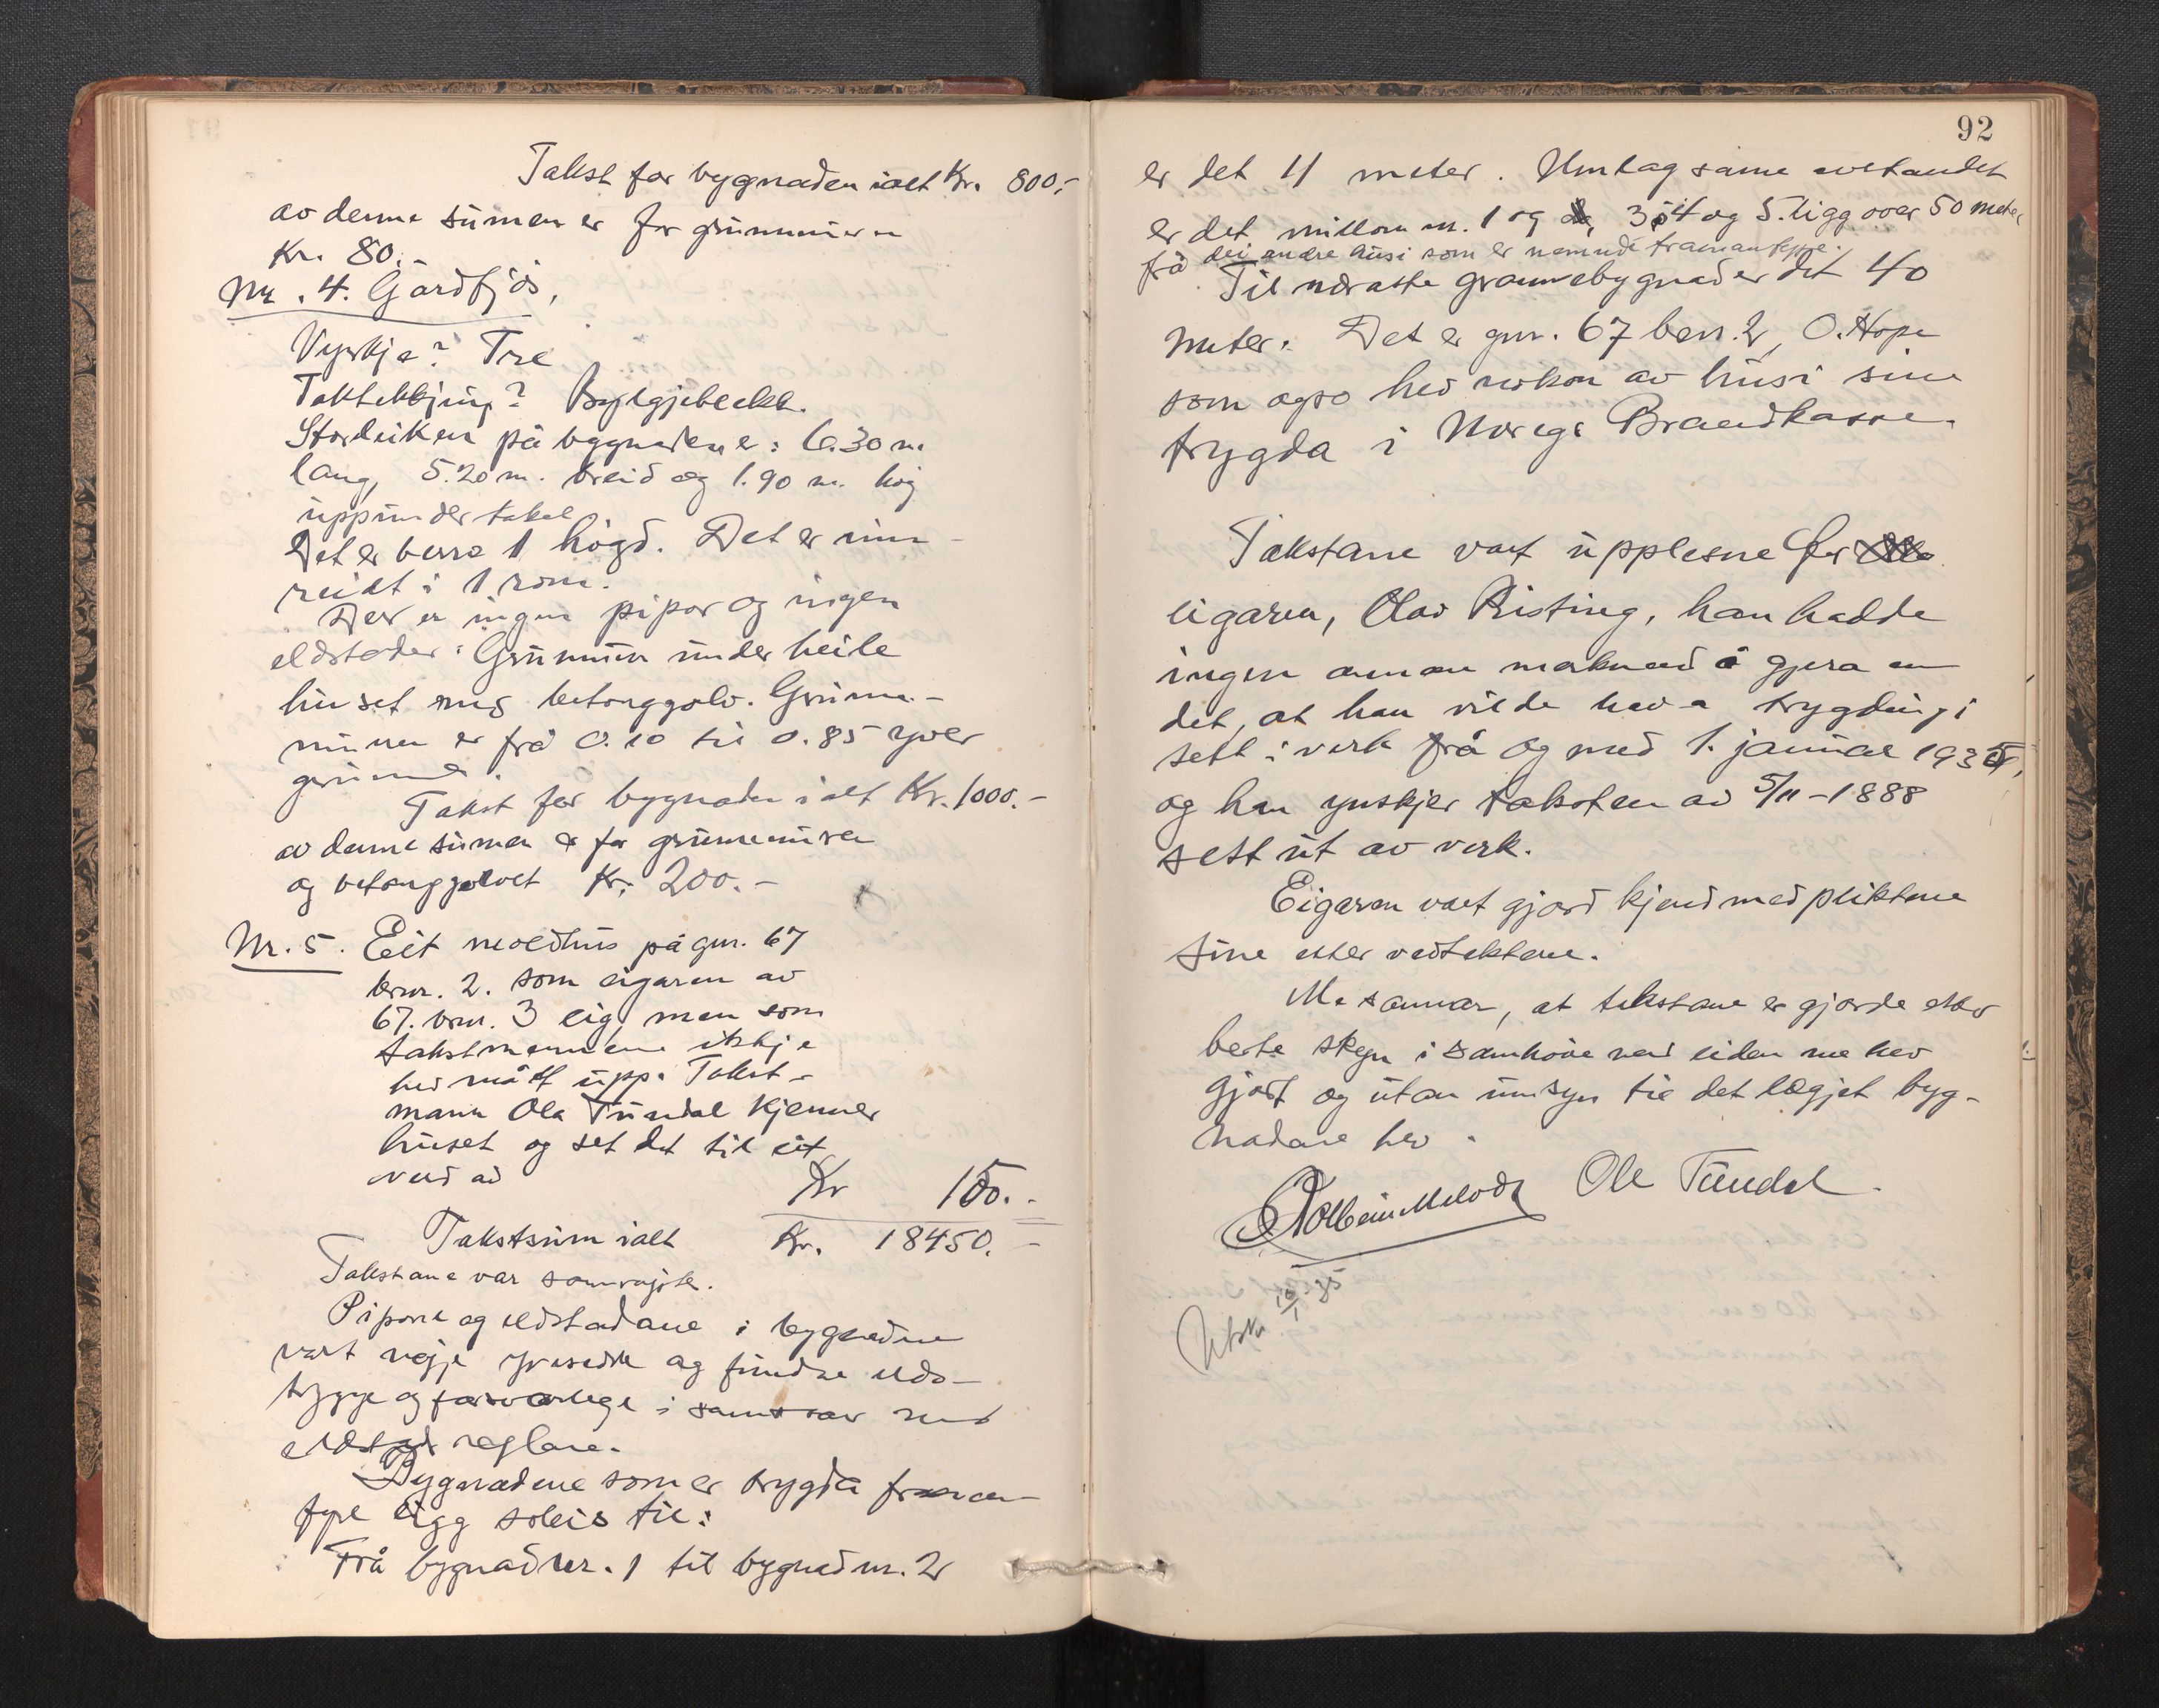 Takst for bygnaden ialt Kr. 800,-
av denne sumen er for grunnmuren
Kr. 80.-
Nr. 4. Gardfjøs,
Vyrkje? Tre
Taktekkjing? Bylgjeblekk.
Stordleiken på bygnadene: 6.30 m.
lang, 5.20 m. breid og 1.90 m. høg
uppunder taket
Det er berre 1 høgd. Det er inn-
reidt i 1 rom.
Der er ingen pipor og ingen
eldstader. Grunnmur under heile
huset med betonggolv. Grunn-
muren er frå 0.10 til 0.85 yver
grunnen.
Takst for bygnaden ialt Kr. 1000.-
av denne sumen er for grunnmuren
og betonggolvet Kr. 200.-
Nr. 5. Eit moldhus på gnr. 67
brnr. 2. som eigaren av
67. brnr. 3 eig, men som
takstmennene ikkje
hev målt upp. Takst-
mann Ola Tundal kjenner
huset og set det til eit
verd av Kr 150.-
Takstsum ialt Kr. 18450.-
Takstane var samrøjste.
Pipone og eldstadane i bygnadene
vart nøje yversedde og fundne elds-
trygge og forsvarlege i samsvar med
eldstad reglane.
Bygnadene som er trygda framan-
fyre ligg soleis til:
Frå bygnad nr. 1 til bygnad nr. 2
92
er det 11 meter. Umlag same avstandet
er det millom nr. 1 og 3, 4 og 5. ligg over 50 meter
frå dei andre husi som er nemnde framanfyre.
Til næraste grannebygnad er det 40
meter. Det er gnr. 67 brnr. 2, O. Hope
som ogso hev nokon av husi sine
trygda i Noregs Brandkasse.
Takstane vart upplesne for
eigaren, Olav Risting, han hadde
ingen annan merknad å gjera en
det, at han vilde hava trygdingi
sett i verk frå og med 1. januar 1935,
og han ynskjer taksten av 5/11-1888
sett ut av verk.
Eigaren vart gjord kjend med pliktene
sine etter vedtektene.
Me sannar, at takstane er gjorde etter
beste skyn i samhøve med eiden me hev
gjort og utan umsyn til det lægjet byg-
nadane hev.
Ole Tundal.
10/1-35